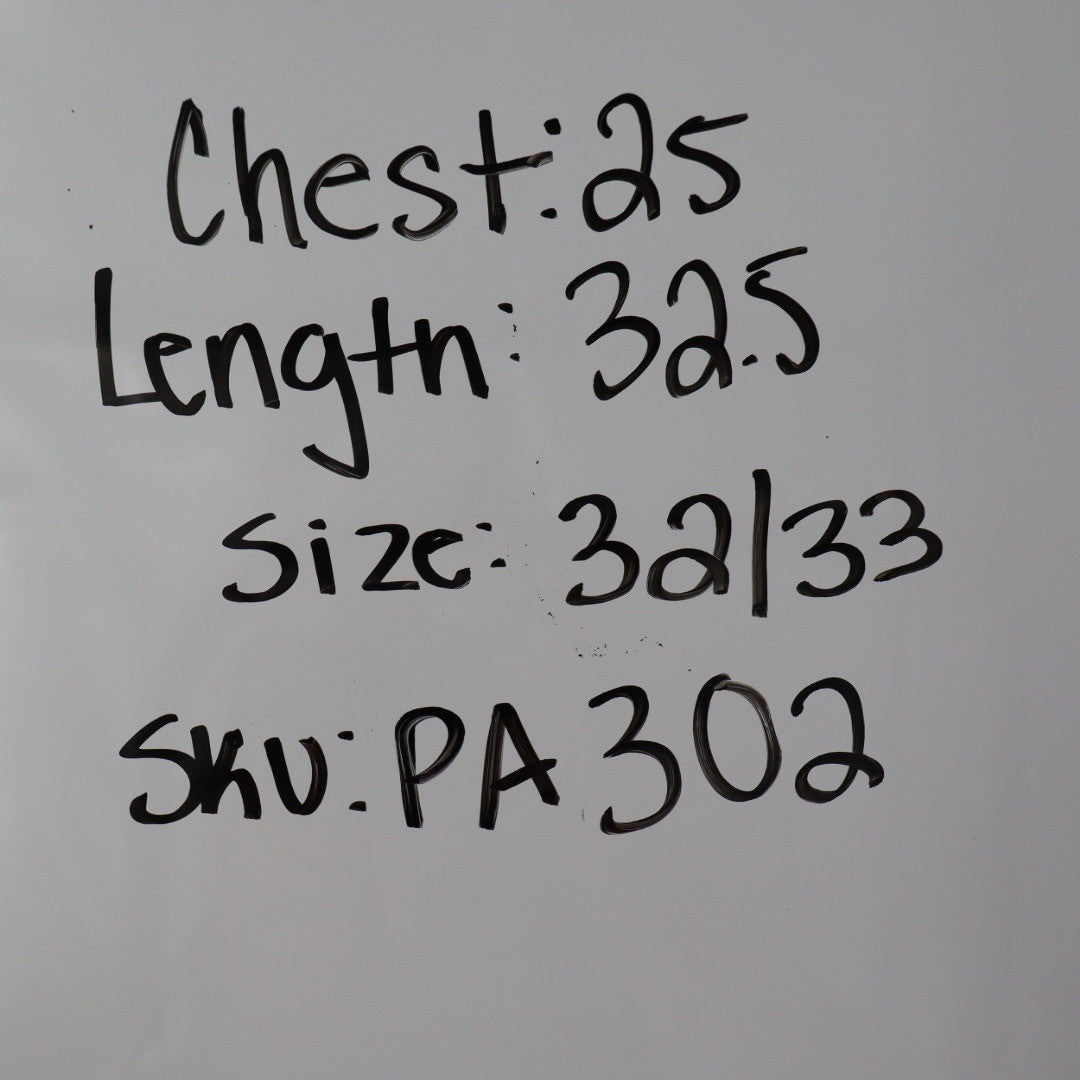 Chest: 25
Length: 32.5
Size: 32/33
SKU: PA 302